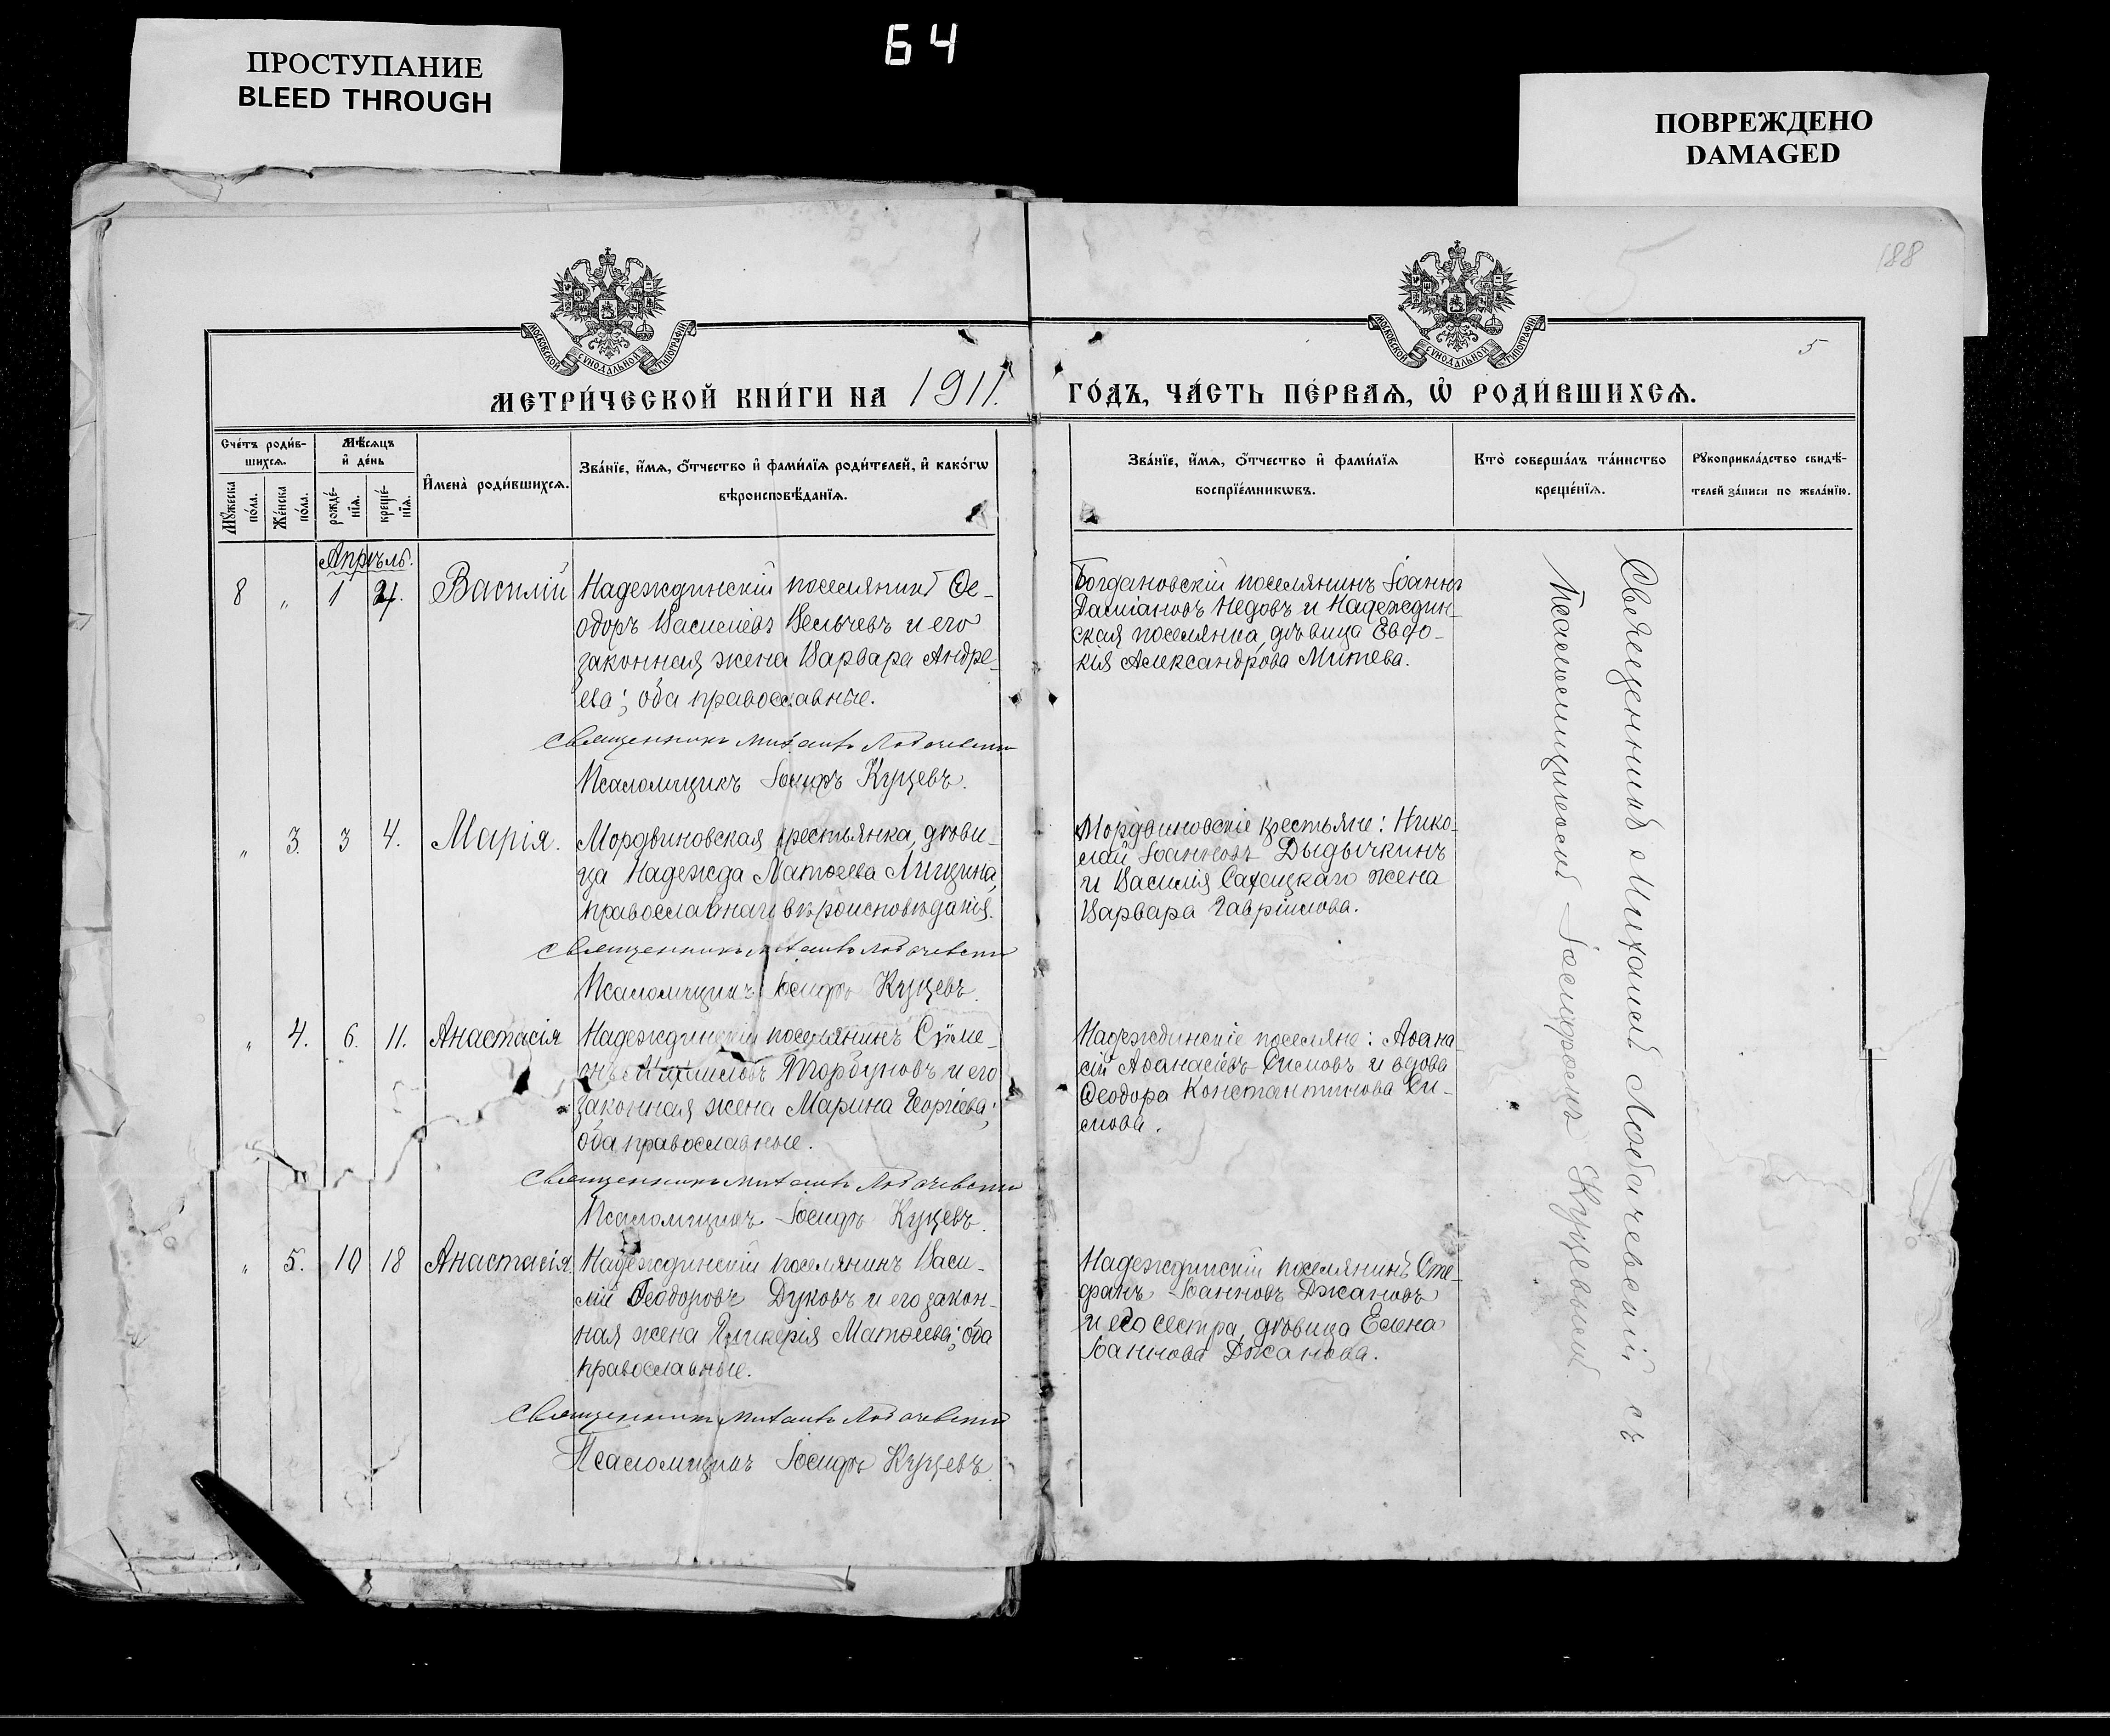 64
ПРОСТУПАНИЕ
BLEED THROUGH
ПОВРЕЖДЕНО
DAMAGED
188
5
5
МОСКОВСКОЙ СѴНОДАЛЬНОЙ ТИПОГРАФІИ
МОСКОВСКОЙ СѴНОДАЛЬНОЙ ТИПОГРАФІИ
МЕТРИ́ЧЕСКОЙ КНИ́ГИ НА 1911.
ГО́ДЪ, ЧА́СТЬ ПЕ́РВАѦ, Ѡ҆ РОДИ́ВШИХСѦ.
Сче́тъ роди́в-
шихсѧ.
Мѣ́сѧцъ
и҆ де́нь
Мꙋ́жеска
по́ла.
Же́нска
по́ла.
рожде́-
нїѧ.
креще́-
нїѧ.
И҆мена̀ роди́вшихсѧ.
Зва́нїе, и҆́мѧ, ѻ҆́тчество и҆ фами́лїѧ роди́телей, и҆ како́гѡ
вѣроисповѣ́данїѧ.
Зва́нїе, и҆́мѧ, ѻ҆́тчество и҆ фами́лїѧ
воспрїе́мникѡвъ.
Кто̀ соверша́лъ та́инство
креще́нїѧ.
Рꙋкоприкла́дство свидѣ́-
телей за́писи по жела́нїю.
Апрѣль.
8 " 1 Василій
Надеждинскій поселянинъ Ѳе-
одоръ Василіевъ Вельчевъ и его
законная жена Варвара Андре-
ева; оба православные.
Священникъ Михаилъ Лобачевскій
Псаломщикъ Іосифъ Куцевъ.
Богдановскій поселянинъ Іоаннъ
Даміановъ Недовъ и Надеждин-
ская поселянка, дѣвица Евдо-
кія Александрова Митева.
" 3. 3 4. Марія.
Мордвиновская крестьянка, дѣви-
ца Надежда Матѳеева Лищина,
православнаго вѣроисповѣданія.
Священникъ Михаилъ Лобачевскій
Псаломщикъ Іосифъ Куцевъ.
Мордвиновскіе крестьяне: Нико-
лай Іоанновъ Дыдычкинъ
и Василія жена
Варвара Гавріилова.
" 4. 6. 11. Анастасія
Надеждинскій поселянинъ Сѵме-
онъ Горбуновъ и его
законная жена Марина Георгіева;
оба православные.
Священникъ Михаилъ Лобачевскій
Псаломщикъ Іосифъ Куцевъ.
Надеждинскіе поселяне: Аѳана-
сій Аѳанасіевъ и вдова
Ѳеодора Константинова
" 5. 10 18 Анастасія.
Надеждинскій поселянинъ Васи-
лій Ѳеодоровъ Дуковъ и его закон-
ная жена Гликерія Матѳеева; оба
православные.
Священникъ Михаилъ Лобачевскій
Псаломщикъ Іосифъ Куцевъ.
Надеждинскій поселянинъ Сте-
фанъ Іоанновъ Джановъ
и его сестра, дѣвица Елена
Іоаннова Джанова.
Священникъ Михаилъ Лобачевскій съ
Псаломщикомъ Іосифомъ Куцевымъ